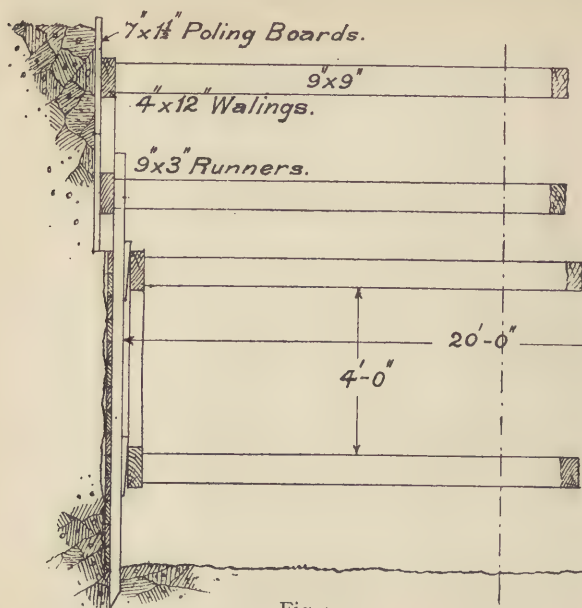 7"x1½" Poling Boards.
9"x9"
4"x12" Walings.
9"x3" Runners.
20'-0"
4'-0"
Fig.